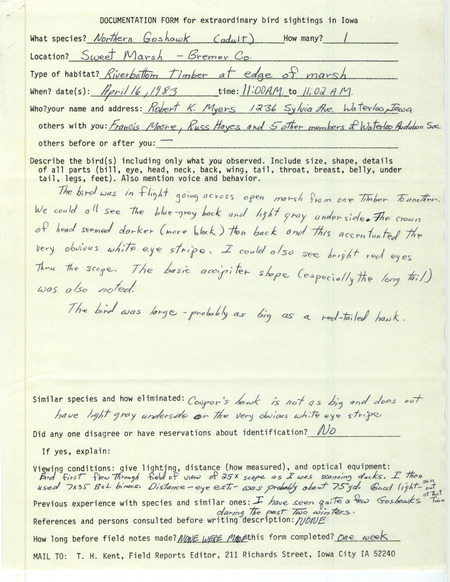 DOCUMENTATION FORM for extraordinary bird sightings in Iowa
What species? Northern Goshawk (adult) How many? 1
Location? Sweet Marsh - Bremer Co.
Type of habitat? Riverbottom Timber at edge of marsh
When? date(s): April 16, 1983 time: 11:00 A.M. to 11:02 A.M.
Who? your name and address: Robert K. Myers 1236 Sylvia Ave. Waterloo, Iowa
others with you: Francis Moore, Russ Hayes and 5 other members of Waterloo Audubon Soc.
others before or after you: —
Describe the bird(s) including only what you observed. Include size, shape, details
of all parts (bill, eye, head, neck, back, wing, tail, throat, breast, belly, under
tail, legs, feet). Also mention voice and behavior.
The bird was in flight going across open marsh from one timber to another.
We could all see the blue-gray back and light gray underside. The crown
of head seemed darker (more black) than back and this accentuated the
very obvious white eye stripe. I could also see bright red eyes
thru the scope. The basic accipiter shape (especially the long tail)
was also noted.
The bird was large - probably as big as a red-tailed hawk.
Similar species and how eliminated: Cooper's hawk is not as big and does not
have light gray underside or the very obvious white eye stripe
Did any one disagree or have reservations about identification? No
If yes, explain:
Viewing conditions: give lighting, distance (how measured), and optical equipment:
Bird first flew through field of view of 25X scope as I was scanning ducks. I then
used 7X35 B+L binocs. Distance - eye est. - was probably about 75 yd. Good light - sun out at that time
Previous experience with species and similar ones: I have seen quite a few Goshawks
during the past two winters.
References and persons consulted before writing description: NONE
How long before field notes made? NONE WERE MADE this form completed? one week
MAIL TO: T. H. Kent, Field Reports Editor, 211 Richards Street, Iowa City IA 52240